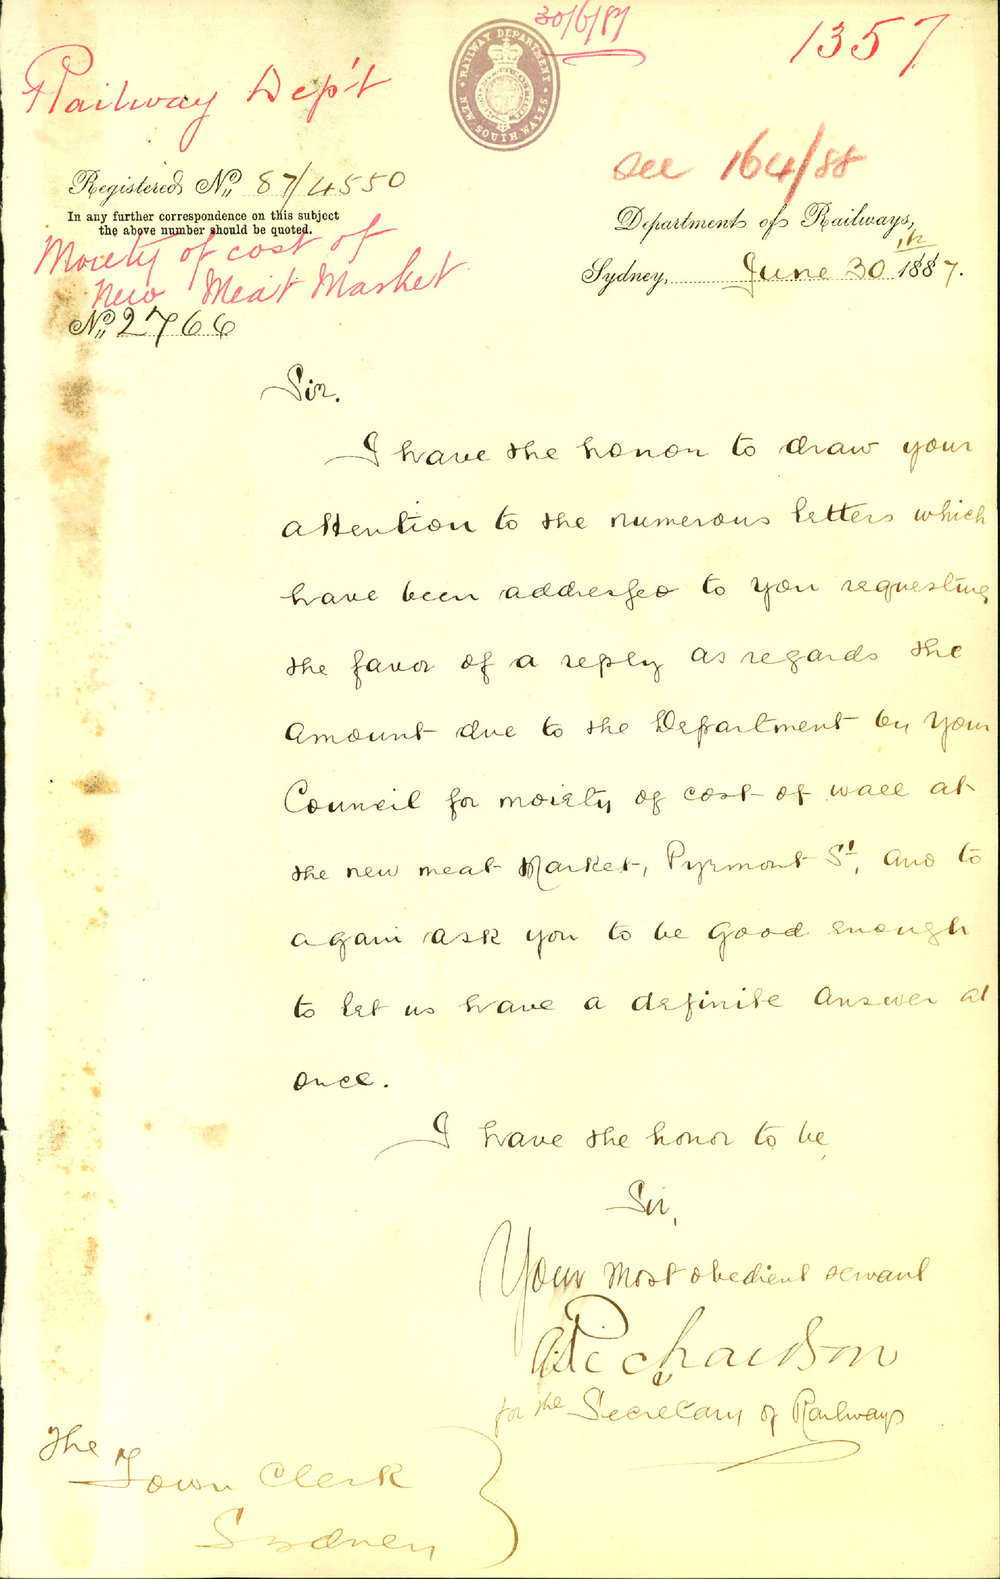 30/6/87
1357
Railway Dep't
RAILWAY DEPARTMENT
NEW SOUTH WALES
see 164/88
Registered No. 87/4550
In any further correspondence on this subject
the above number should be quoted.
Moiety of cost of
New Meat Market
No. 2766
Department of Railways,
Sydney, June 30th 1887.
Sir.
I have the honor to draw your
attention to the numerous letters which
have been addressed to you requesting
the favor of a reply as regards the
amount due to the Department by your
Council for moiety of cost of wall at
the new meat Market, Pyrmont St, and to
again ask you to be good enough
to let us have a definite answer at
once.
I have the honor to be,
Sir,
Your most obedient servant
A Richardson
for the Secretary of Railways
The
Town Clerk
Sydney